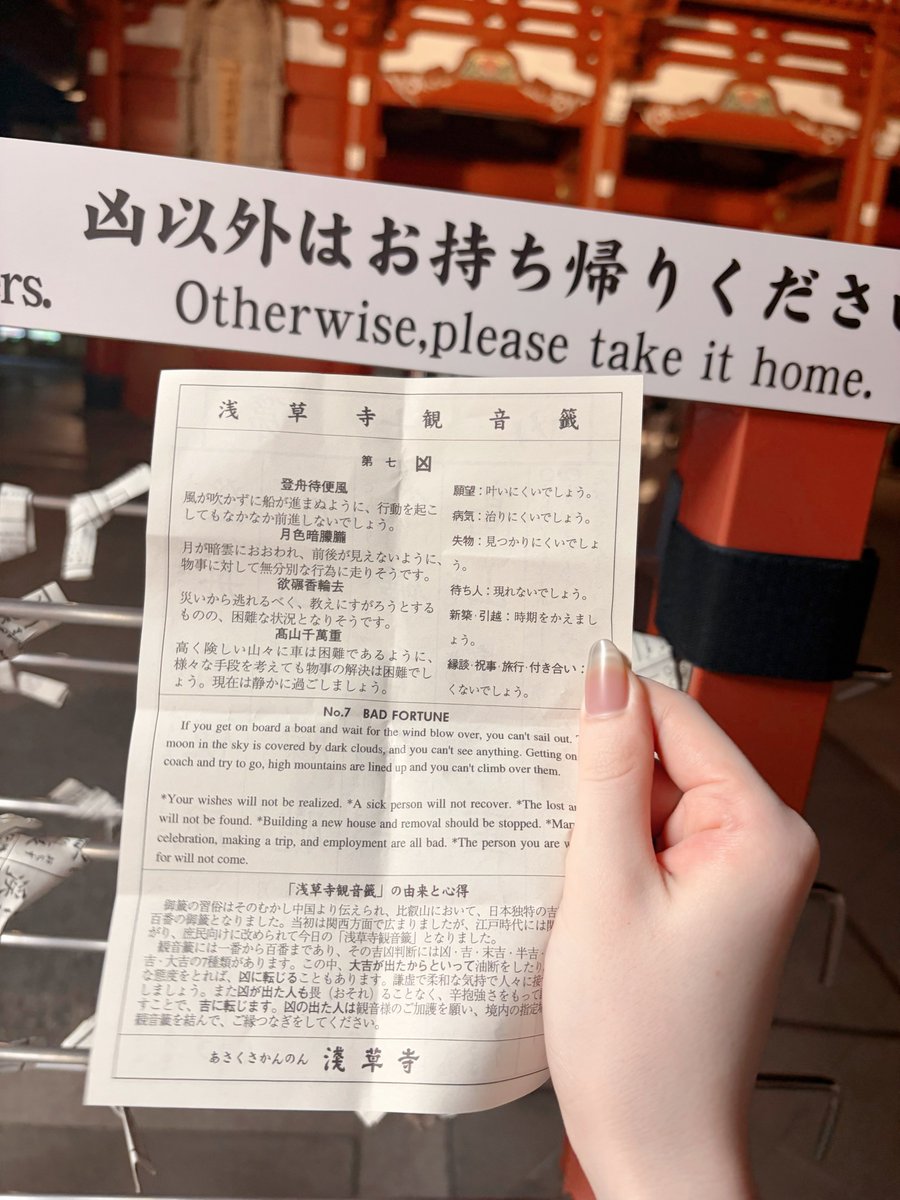 凶以外はお持ち帰りくださ
rs.
Otherwise,please take it home.
浅草寺観音籤
第七 凶
登舟待便風
風が吹かずに船が進まぬように、行動を起こ
してもなかなか前進しないでしょう。
月色暗朦朧
月が暗雲におおわれ、前後が見えないように、
物事に対して無分別な行為に走りそうです。
欲碾香輪去
災いから逃れるべく、教えにすがろうとする
ものの、困難な状況となりそうです。
高山千萬重
高く険しい山々に車は困難であるように、
様々な手段を考えても物事の解決は困難でし
ょう。現在は静かに過ごしましょう。
願望：叶いにくいでしょう。
病気：治りにくいでしょう。
失物：見つかりにくいでしょ
う。
待ち人：現れないでしょう。
新築・引越：時期をかえまし
ょう。
縁談・祝事・旅行・付き合い：
くないでしょう。
No.7 BAD FORTUNE
If you get on board a boat and wait for the wind blow over, you can't sail out.
moon in the sky is covered by dark clouds, and you can't see anything. Getting on
coach and try to go, high mountains are lined up and you can't climb over them.
*Your wishes will not be realized. *A sick person will not recover. *The lost
will not be found. *Building a new house and removal should be stopped.
celebration, making a trip, and employment are all bad. *The person you are
for will not come.
「浅草寺観音籤」の由来と心得
御籤の習俗はそのむかし中国より伝えられ、比叡山において、日本独特の吉
百番の御籤となりました。当初は関西方面で広まりましたが、江戸時代には関
がり、庶民向けに改められて今日の「浅草寺観音籤」となりました。
観音籤には一番から百番まであり、その吉凶判断には凶・吉・末吉・半吉・
吉・大吉の7種類があります。この中、大吉が出たからといって油断をしたり
な態度をとれば、凶に転じることもあります。謙虚で柔和な気持で人々に接
しましょう。また凶が出た人も畏（おそれ）ることなく、辛抱強さをもって
すことで、吉に転じます。凶の出た人は観音様のご加護を願い、境内の指定
観音籤を結んで、ご縁つなぎをしてください。
あさくさかんのん 淺草寺